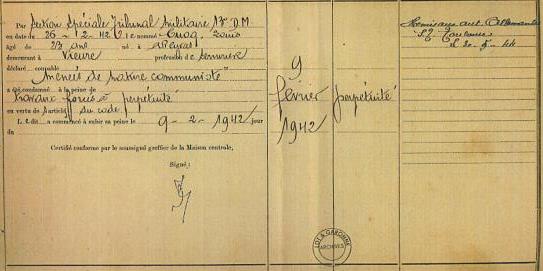 Par Section Spéciale Tribunal Militaire 13e D.M.
en date du 26-2-42 le nommé Cuoq, Louis
âgé de 23 ans né à
demeurant à Vieure profession de serrurier
déclaré coupable
"Menées de nature communiste"
a été condamné à la peine de
travaux forcés à perpétuité
en vertu de l'article du code
Le dit a commencé à subir sa peine le 9-2-1942 jour
du
Certifié conforme par le soussigné greffier de la Maison centrale,
Signé :
9
février
1942
perpétuité
Remis aux aut. Allemandes
le 30-5-44
LOT & GARONNE
ARCHIVES